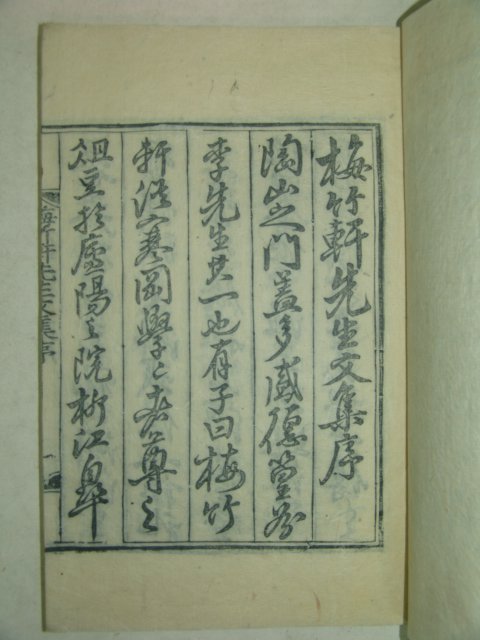 梅竹軒先生文集序
陶山之門蓋多盛德篁谷
李先生其一也有子曰梅竹
軒從寒岡學々者尊之
俎豆於廬陽之院析江皐
梅竹軒先生文集序